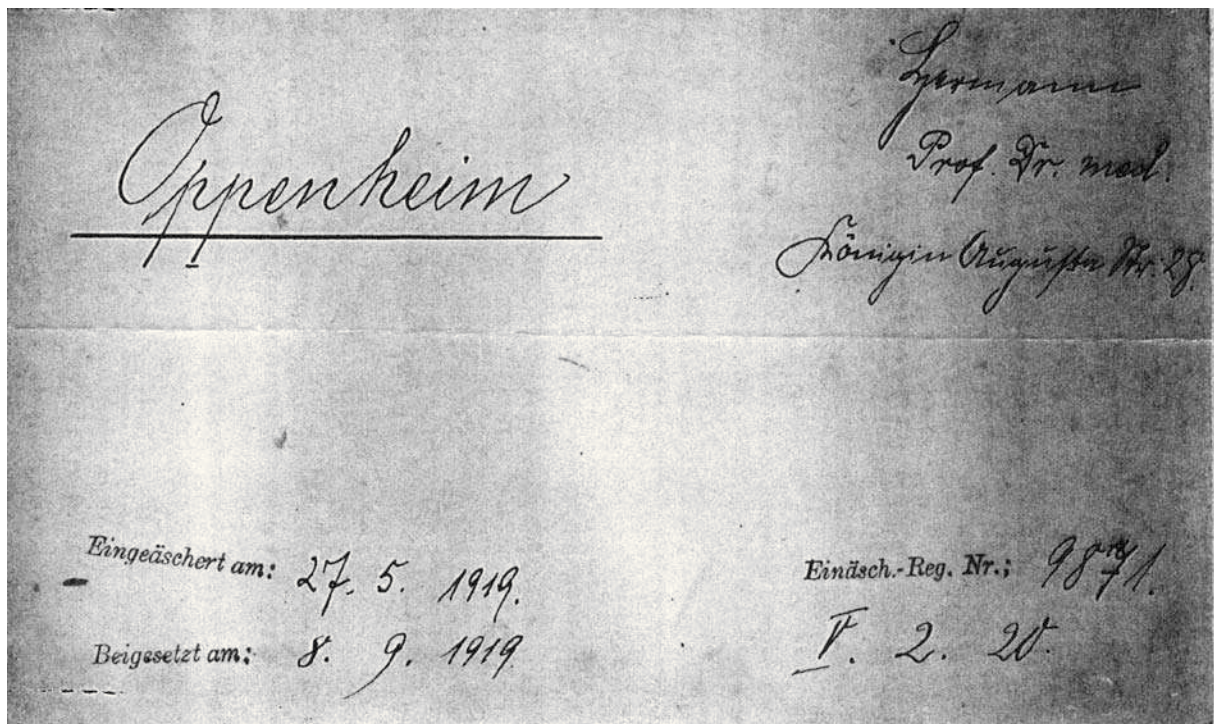 Oppenheim
Hermann
Prof. Dr. med.
Königin Augusta Str. 28.
Eingeäschert am: 27. 5. 1919.
Beigesetzt am: 8. 9. 1919
Einäsch.-Reg. Nr.: 9871.
V. 2. 20.